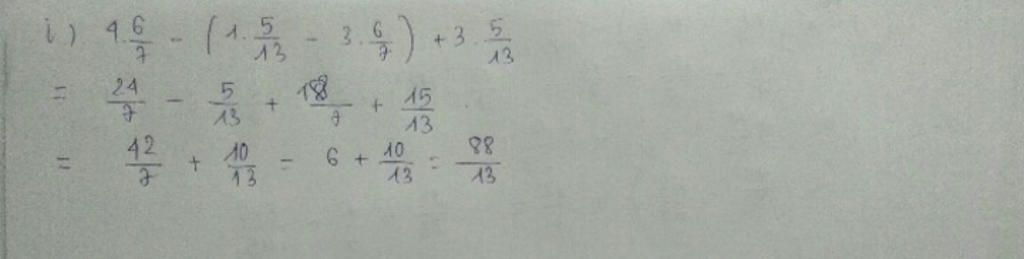 i) 4.6/7 - (1.5/13 - 3.6/7) + 3.5/13
= 24/7 - 5/13 + 18/7 + 15/13
= 42/7 + 10/13 = 6 + 10/13 = 88/13